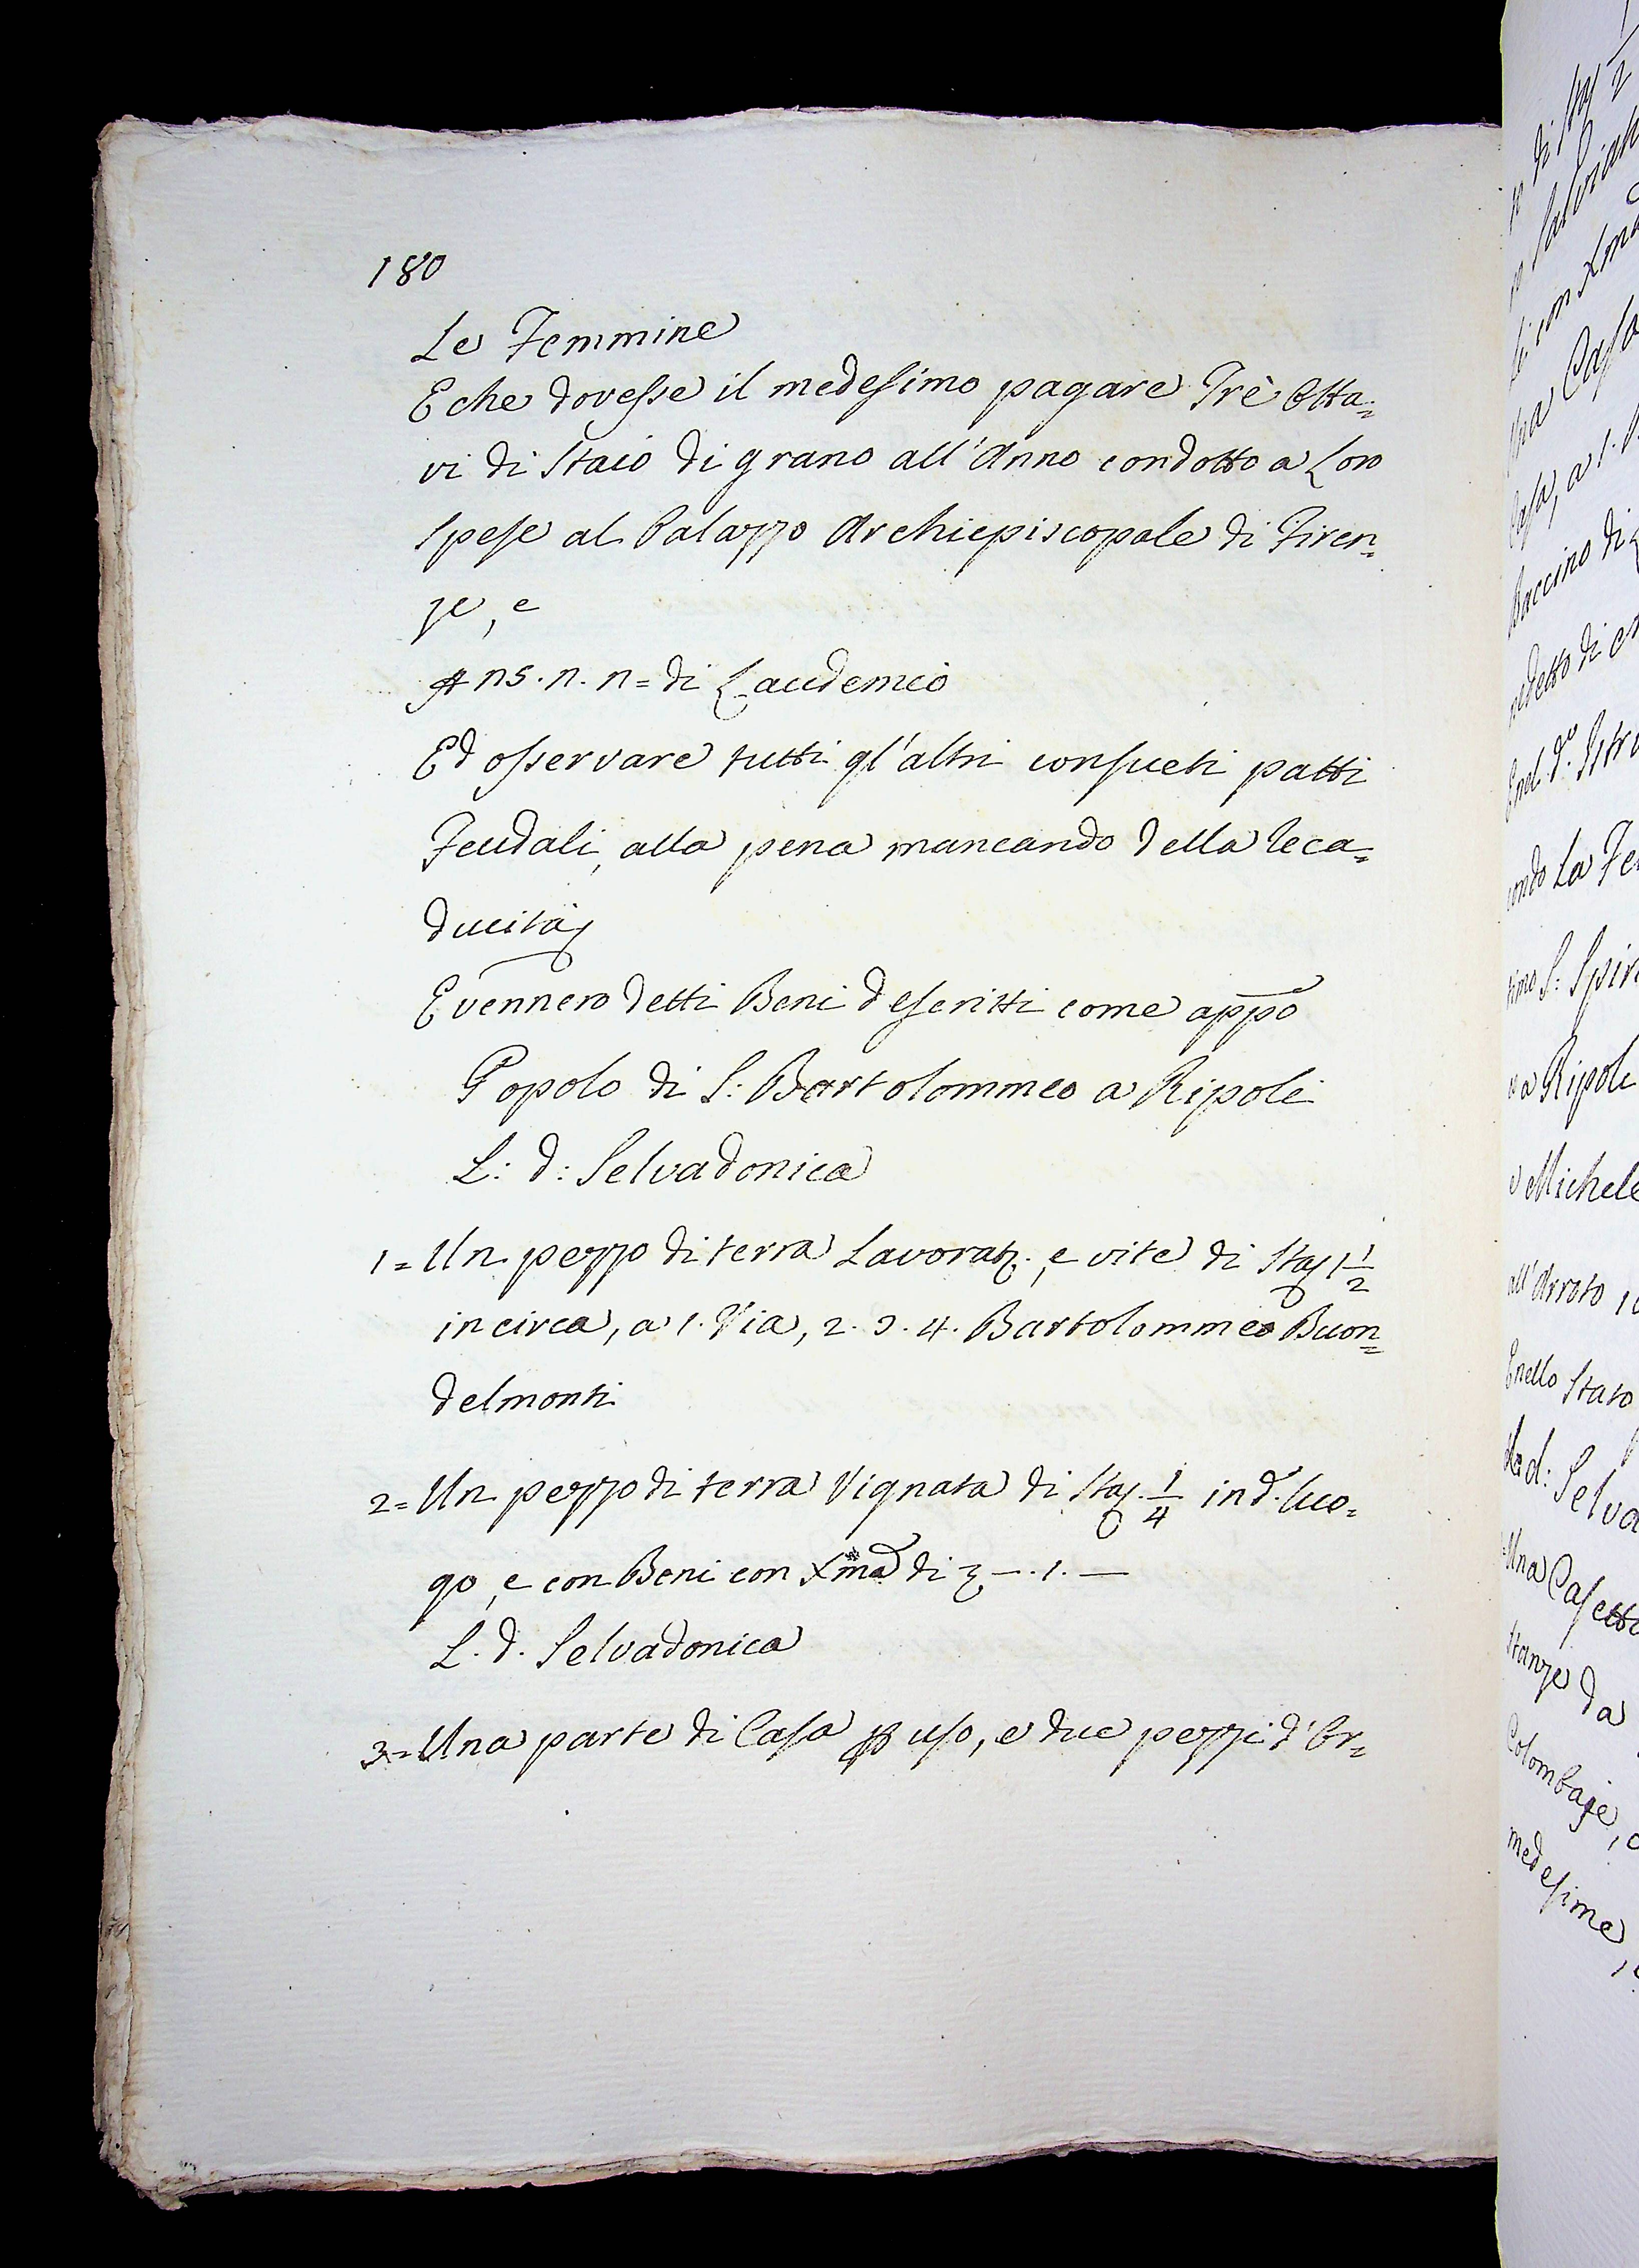 180
Le Femmine
E che dovesse il medesimo pagare Trè Otta=
vi di Staio di grano all'Anno condotto a Loro
Spese al Palazzo Archiepiscopale di Firen=
ze, e
di Laudemio
Ed osservare tutti gl'altri consueti patti
Feudali, alla pena mancando della Ieca=
ducità
E vennero detti Beni descritti come appo
Popolo di S: Bartolommeo a Ripoli
L: d: Selvadonica
1= Un pezzo di terra Lavorat., e vite di Staj 1 1/2
in circa, a 1. Via, 2. 3. 4. Bartolommeo Buon=
delmonti
2= Un pezzo di terra Vignata di Staj. 1/4 in d. luo=
go, e con Beni con Xma di —.1.—
L. d. Selvadonica
3= Una parte di Casa p uso, e due pezzi d'Or=
Una Casa
Casa, a 1.
Baccino di
La Fe
S: Spir
a Ripoli
Michele
all'Arroto
Enello Stato
d: Selva
Una Casetta
Stanze da
Colombaje,
medesime,